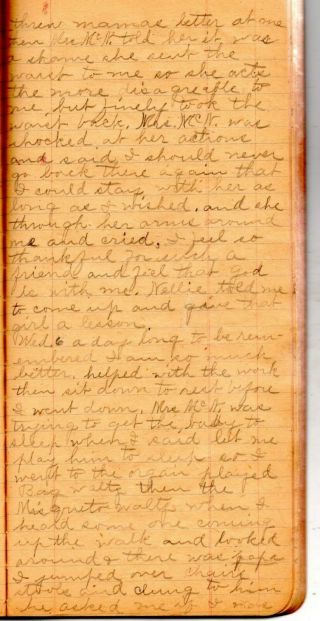 threw mamas letter at me
then Mrs McN. told her it was
a shame she sent the
waist to me so she acts
the more disagreeable to
me, but finely took the
waist back. Mrs. McN. was
shocked at her actions
and said I should never
go back there again that
I could stay with her as
long as I wished. and she
through her arms around
me and cried. I feel so
thankful for such a
friend and feel that God
is with me. Nellie told me
to come up and give that
girl a lesson.
Wed 6 a day long to be rem-
embered I am so much
better, helped with the work
then sit down to rest before
I went down. Mrs McN. was
trying to get the baby to
sleep when I said let me
play him to sleep so I
went to the organ played
Bay waltz then the
waltz when I
heard some one coming
up the walk and looked
around & there was papa
I jumped over chairs
stools and clung to him
he asked me if I was